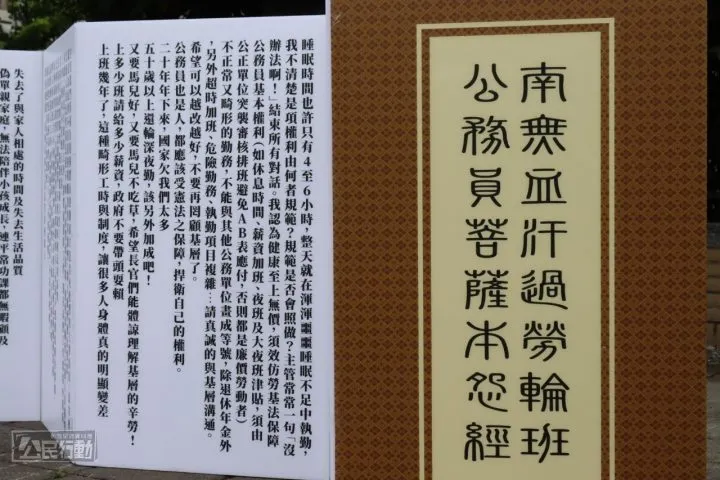 南無血汗過勞輪班
公務員菩薩本怨經
睡眠時間也許只有4至6小時,整天就在渾渾噩噩睡眠不足中執勤,
我不清楚是項權利由何者規範?規範是否會照做?主管常常一句「沒
辦法啊!」結束所有對話。我認為健康至上無價,須效仿勞基法保障
公務員基本權利(如休息時間、薪資加班、夜班及大夜班津貼,須由
公正單位突襲審核排班避免AB表應付,否則都是廉價勞動者)
不正常又畸形的勤務,不能與其他公務單位畫成等號,除退休年金外
,另外超時加班、危險勤務、執勤項目複雜…請真誠的與基層溝通。
希望可以越改越好,不要再罔顧基層了。
公務員也是人,都應該受憲法之保障,捍衛自己的權利。
二十年年下來,國家欠我們太多
五十歲以上還輪深夜勤,該另外加成吧!
又要馬兒好,又要馬兒不吃草,希望長官們能體諒理解基層的辛勞!
上多少班請給多少薪資,政府不要帶頭耍賴
上班幾年了,這種畸形工時與制度,讓很多人身體真的明顯變差
失去了與家人相處的時間及失去生活品質
偽單親家庭,無法陪伴小孩成長,連平常功課都無暇顧及
公民行動